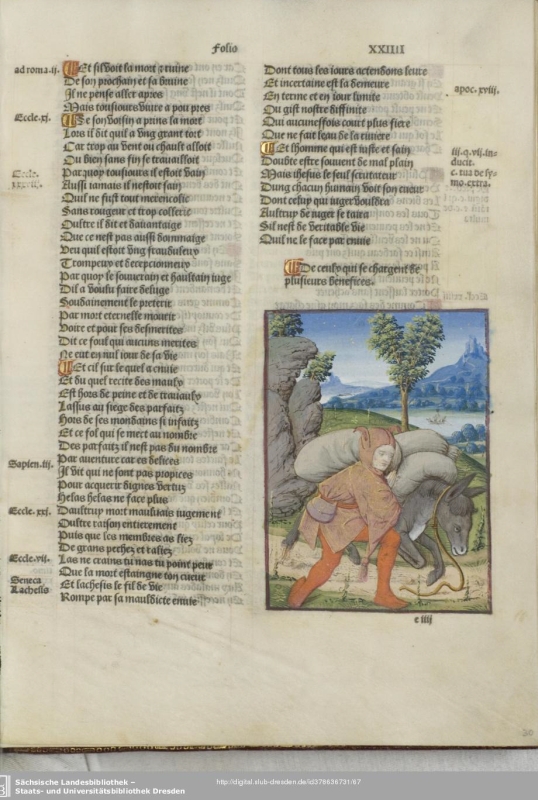 Folio
XXIIII
ad roma.ii.
Et sil voit la mort et ruine
De son prochain et sa bruine
Il ne pense aller apres
Mais tousiours viure a pou pres
Eccle.xi.
De son voisin a prins la mort
Lors il dit quil a vng grant tort
Car trop au vent ou chault alloit
Ou bien sans fin se trauailloit
Par quoy tousiours il estoit vain
Aussi iamais il nestoit sain
Quil ne fust tout merencolic
Sans rougeut et trop colleric
Oultre il dit et dauantaige
Que ce nest pas aussi dommaige
Veu quil estoit vng fraubuleux
Trompeux et decepcionneux
Par quoy le souuerain et haultain iuge
Dil a voulu faire deluge
Soudainement le preterit
Par mort eternelle mourir
Voire et pour ses desmerites
Dit ce foul qui aucuns merites
Ne eut en nul iour de sa vie
Et cil sur le quel a enuie
Et du quel recite des maulx
Est hors de peine et de trauaulx
Lassus au siege des parfaitz
Hors de ses mondains si infaitz
Et ce fol qui se mect au nombre
Des parfaitz il nest pas du nombre
Sapien.iii.
Par auenture car es delices
Il vit qui ne sont pas propices
Pour acquerir dignes vertuz
Helas helas ne face plus
Eccle. xxi.
Daultrup mort mauluais iugement
Oultre raison entierement
Puis que les membres as liez
De grans pechez et taliez
Eccle.vii.
Las ne crains tu nas tu point peur
Que la mort estaingne ton cueur
Seneca
Lachesis
Et lachesis le fil de vie
Rompe par sa mauldicte enuie
Dont tous les iours actendons leure
Et incertaine est la demeure
apoc. xviii.
En terme et en iour limite
Ou gist nostre diffinite
Qui aucuneffois court plus fiere
Que ne fait leau de la riuiere
Et lhomme qui est iuste et sain
iii.q.vii.in-
Doubte estre souuent de mal plain
ducit.
Mais ihesus le seul scrutateur
c. tua de sy-
Dung chacun humain voit son cueur
mo.extra.
Dont celuy qui iuger vouldra
Aultrup de iuger se taira
Sil nest de veritable vie
Quil ne le face par enuie
De ceulx qui se chargent de
plusieurs benefices.
e iiij
30
Sächsische Landesbibliothek –
Staats- und Universitätsbibliothek Dresden
http://digital.slub-dresden.de/id378636731/67